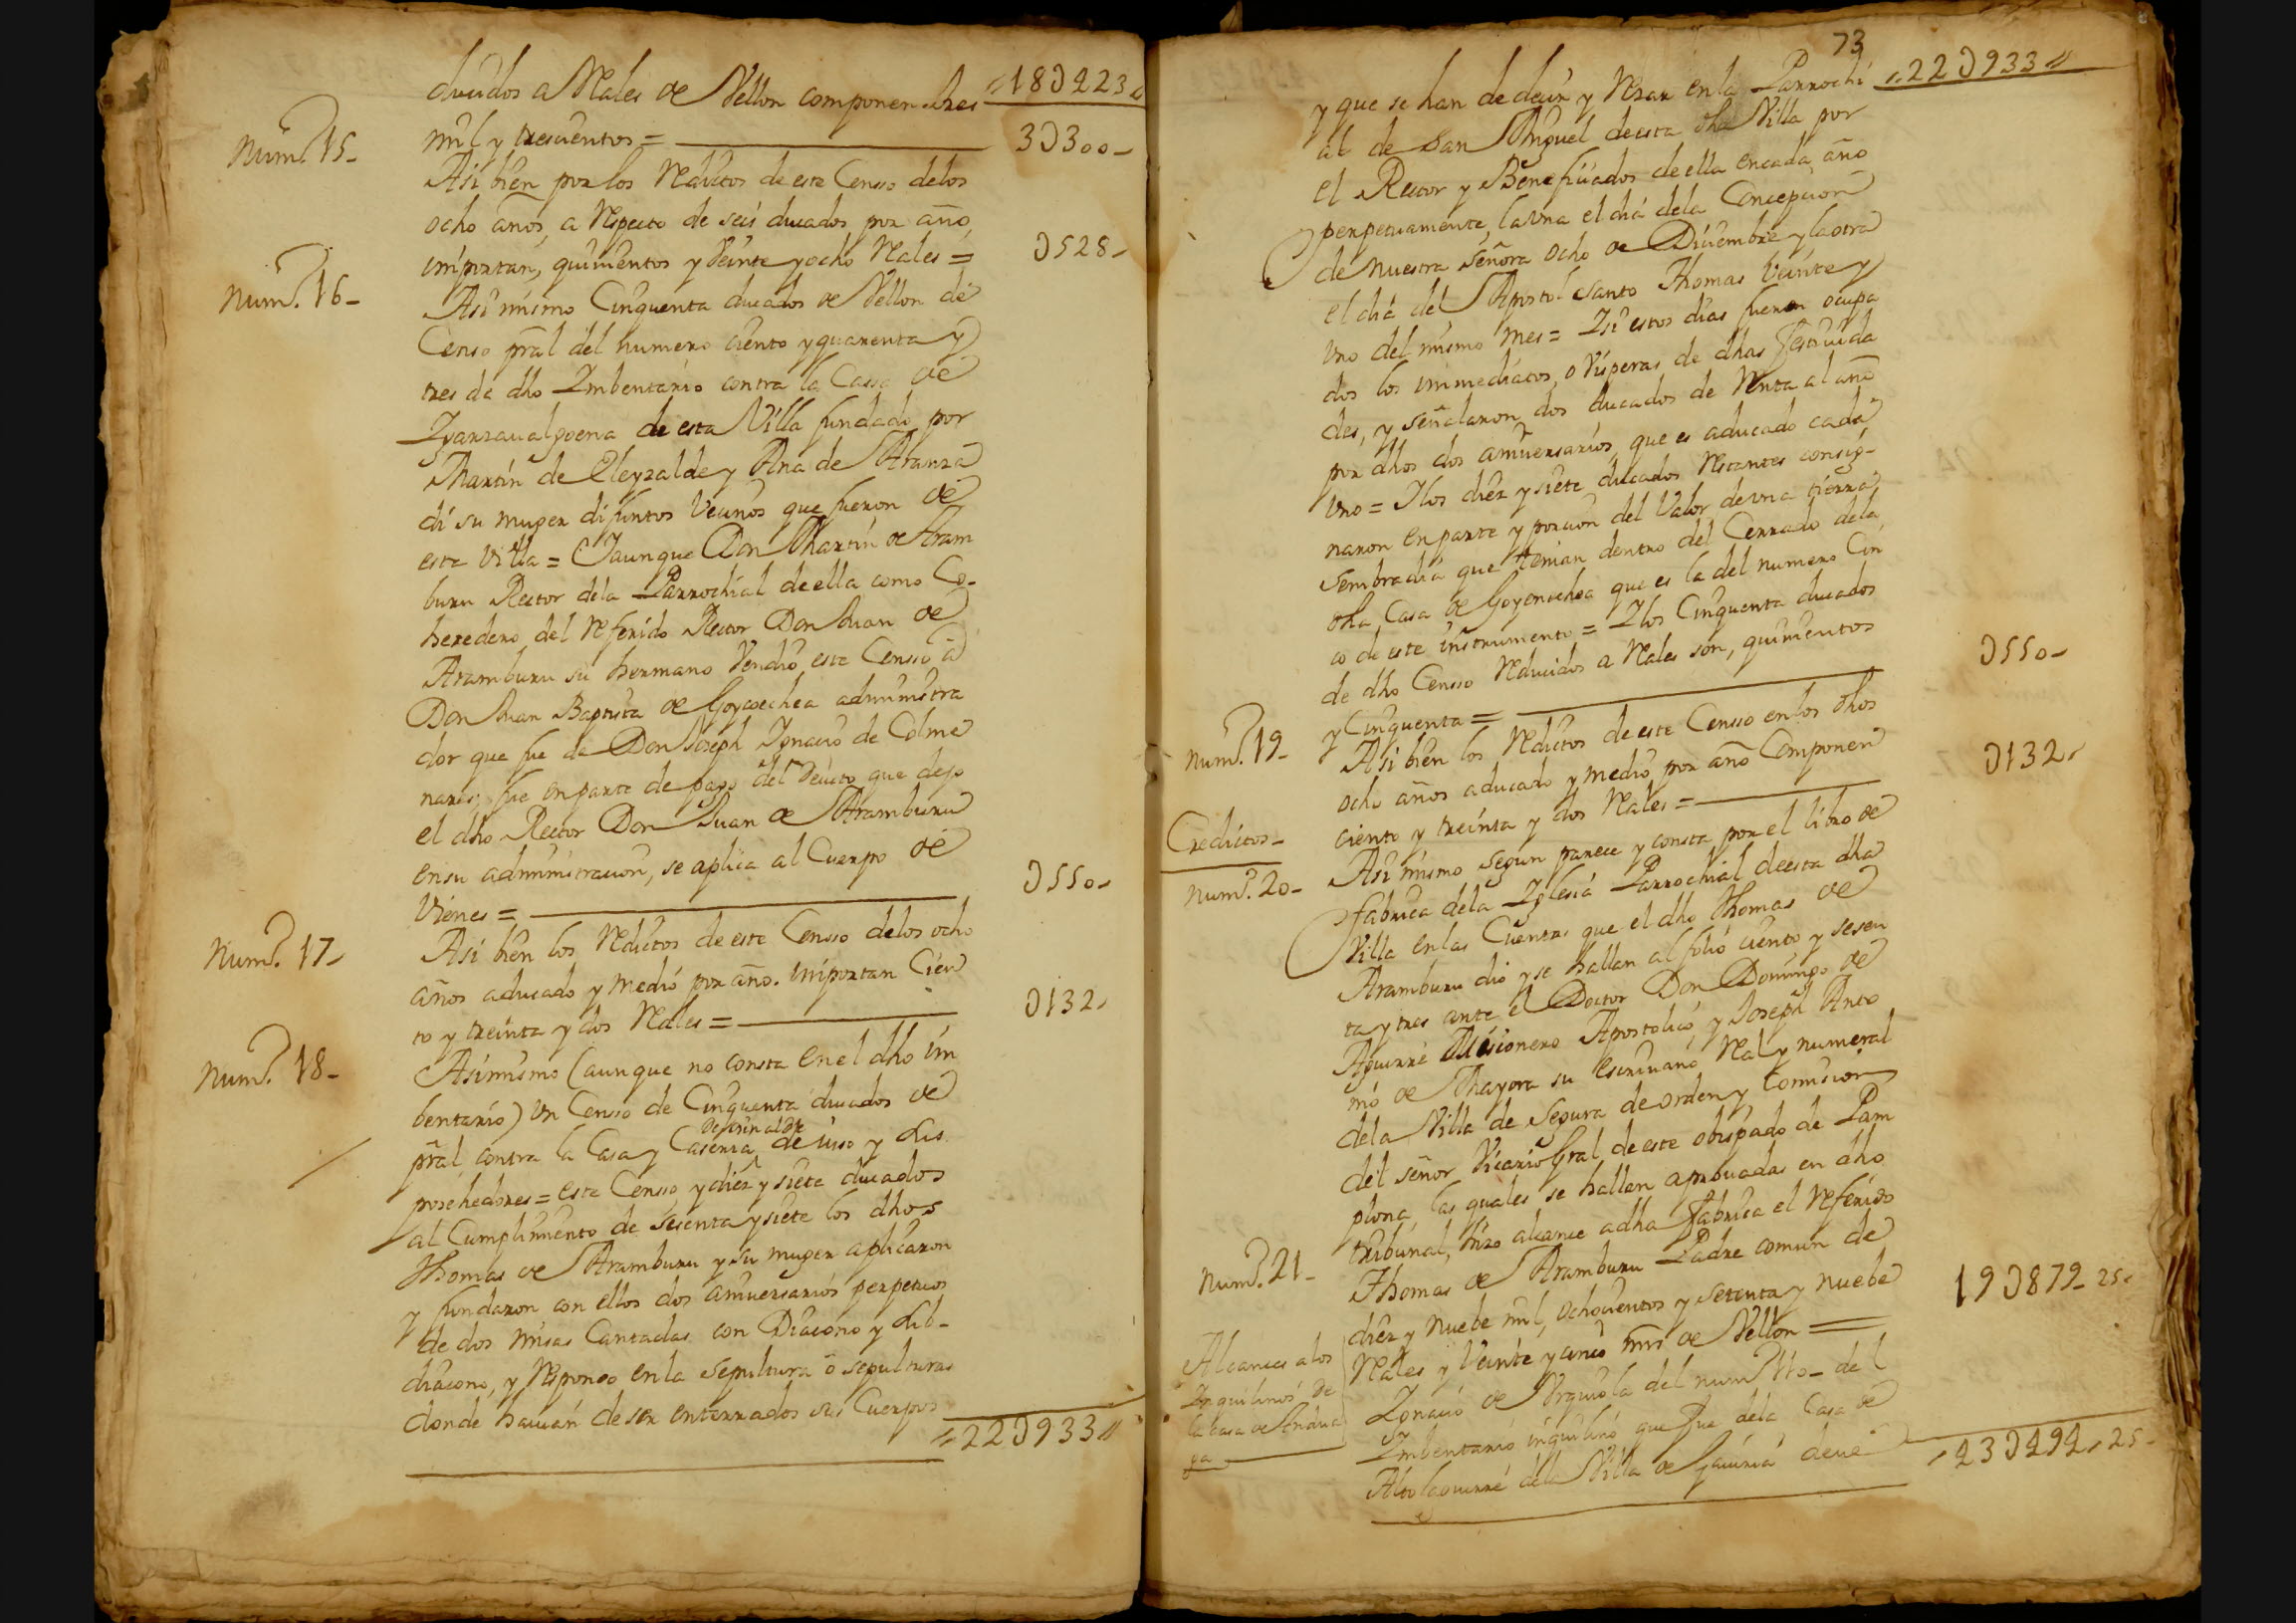 ducidos a Reales de Vellon componen tres
"18U423"
mil y trescientos =
3U300-
Num.º 15-
Asi bien por los Reditos de este Censso de los
ocho años, a respecto de seis ducados por año,
importan, quinientos y veinte y ocho Reales =
U528-
Num.º 16-
Asi mismo Cinquenta ducados de Vellon de
Censo pral del numero ciento y quarenta y
tres de dho Imbentario contra la Cassa de
de esta Villa fundado por
Martin de Eleyzalde y Ana de Aranza
di su muger difuntos Vecinos que fueron de
esta Villa = Y aunque Don Martin de Aram
buru Rector dela Parrochial de ella como Co-
heredero del referido Rector Don Juan de
Aramburu su hermano Vendio este Censso a
Don Juan Baptista de Goycoechea administra
dor que fue de Don Joseph Ignacio de Colme
nares, fue en parte de pago del Devito que dejo
el dho Rector Don Juan de Aramburu
en su administracion, se aplica al Cuerpo de
Vienes =
U550-
Num.º 17-
Asi bien los Reditos de este Censso delos ocho
años aducado y medio por año. importan Cien
to y treinta y dos Reales =
U132-
Num.º 18-
Asimismo (aunque no consta en el dho im
bentario) un Censo de Cinquenta ducados de
pral contra la Casa y Caseria de uso y sus
posehedores = este Censso, y diez y siete ducados
al Cumplimiento de sesenta y siete los dhos
Thomas de Aramburu y su muger aplicaron
y fundaron con ellos dos aniversarios perpetuos
de dos misas Cantadas con Diacono y sub-
diacono, y Responso en la Sepultura ó sepulturas
donde havian de ser enterrados sus Cuerpos
"22U933"
73
"22U933"
y que se han de decir y Rezar en la Parrochi
al de San Miguel de esta dha Villa por
el Rector y Beneficiados de ella en cada año
perpetuamente, la una el dia dela Concepcion
de nuestra Señora ocho de Diciembre y la otra
el dia del Apostol Santo Thomas veinte y
uno del mismo mes = Y si estos dias fueren ocupa
dos los immediatos, o Visperas de dhas festivida
des, y señalaron dos ducados de Renta al año
por dhos dos aniversarios, que es aducado cada
uno = Y los diez y siete ducados Restantes consig-
naron en parte y porcion del Valor de una tierra
Sembradia que tenian dentro del Cerrado dela
dha Casa de Goyenechea que es la del numero Cin
co de este instrumento = Y los Cinquenta ducados
de dho Censso Reducidos a Reales son, quinientos
y Cinquenta =
U550-
Num.º 19-
Asi bien los Reditos de este Censso en los dhos
ocho años aducado y medio por año Componen
ciento y treinta y dos Reales =
U132-
Creditos-
Num.º 20-
Asi mismo segun parece y consta por el libro de
fabrica dela Iglesia Parrochial de esta dha
Villa en las Cuentas que el dho Thomas de
Aramburu dio y se hallan al folio ciento y sesen
ta y tres ante el Doctor Don Domingo de
Aguirre Missionero Apostolico y Joseph Anto
nio de Mayora su escrivano Real y numeral
dela Villa de Segura de orden y Comision
del señor Vicario Gral de este obispado de Pam
plona, las quales se hallan aprobadas en dho
tribunal, hizo alcance adha fabrica el referido
Thomas de Aramburu Padre comun de
diez y nuebe mil, ochocientos y setenta y nuebe
Reales y Veinte y cinco mrs de Vellon =
19U879-25-
Num.º 21-
Alcances a los
Inquilinos de
la casa de
Ignacio de Urquiola del num.º 110- del
Imbentario inquilino que fue dela Casa de
dela Villa de Gaviria deve
-43U494-25-